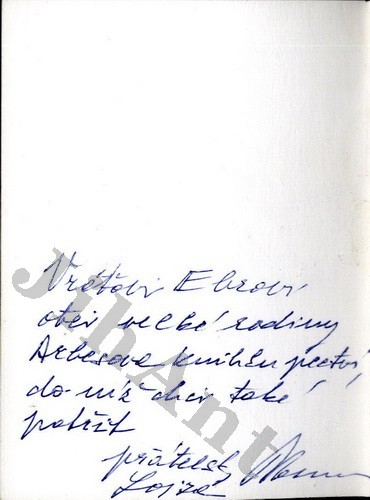 Vráťovi Ebrovi
otci velké rodiny
Arbesova knihkupectví,
do níž chci také
patřit
přátelsky
Lojza
JihAnt